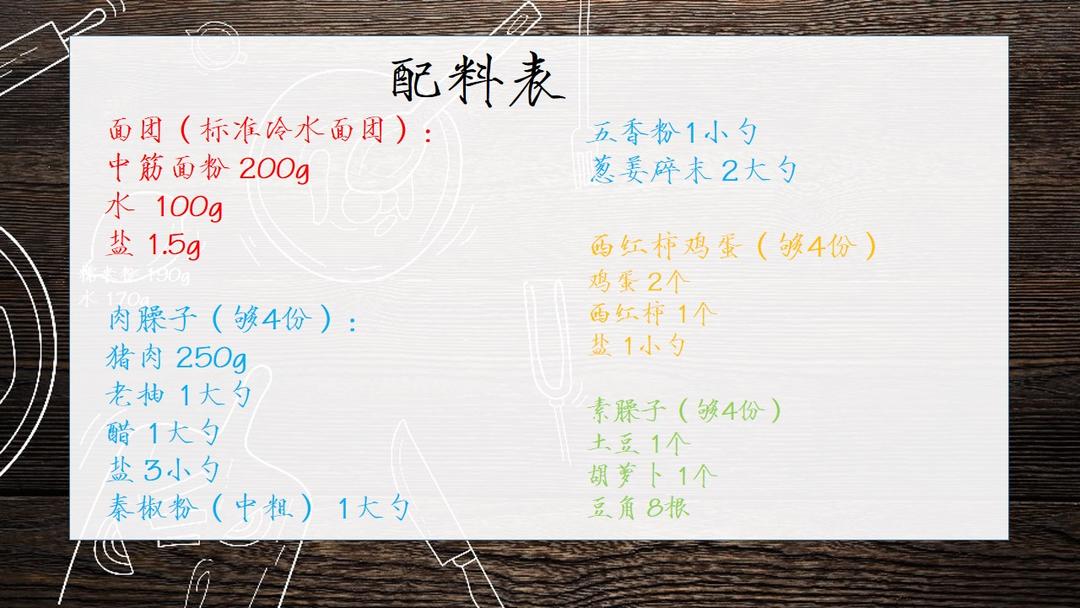 配料表
面团（标准冷水面团）：
中筋面粉 200g
水 100g
盐 1.5g
水 170g
肉臊子（够4份）：
猪肉 250g
老抽 1大勺
醋 1大勺
盐 3小勺
秦椒粉（中粗） 1大勺
五香粉1小勺
葱姜碎末 2大勺
西红柿鸡蛋（够4份）
鸡蛋 2个
西红柿 1个
盐 1小勺
素臊子（够4份）
土豆 1个
胡萝卜 1个
豆角 8根